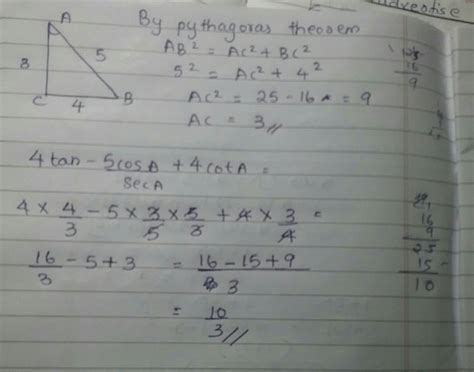 advertise
A
By pythagoras theorem
AB² = AC² + BC²
3
5
5² = AC² + 4²
C
4
B
AC² = 25 - 16 = 9
AC = 3 //
25
16
9
4 tan - 5 cos A / sec A + 4 cot A =
4 × 4/3 - 5 × 3/5 × 5/3 + 4 × 3/4 =
16/3 - 5 + 3 = 16 - 15 + 9 / 3
= 10/3 //
16
9
25
15 -
10